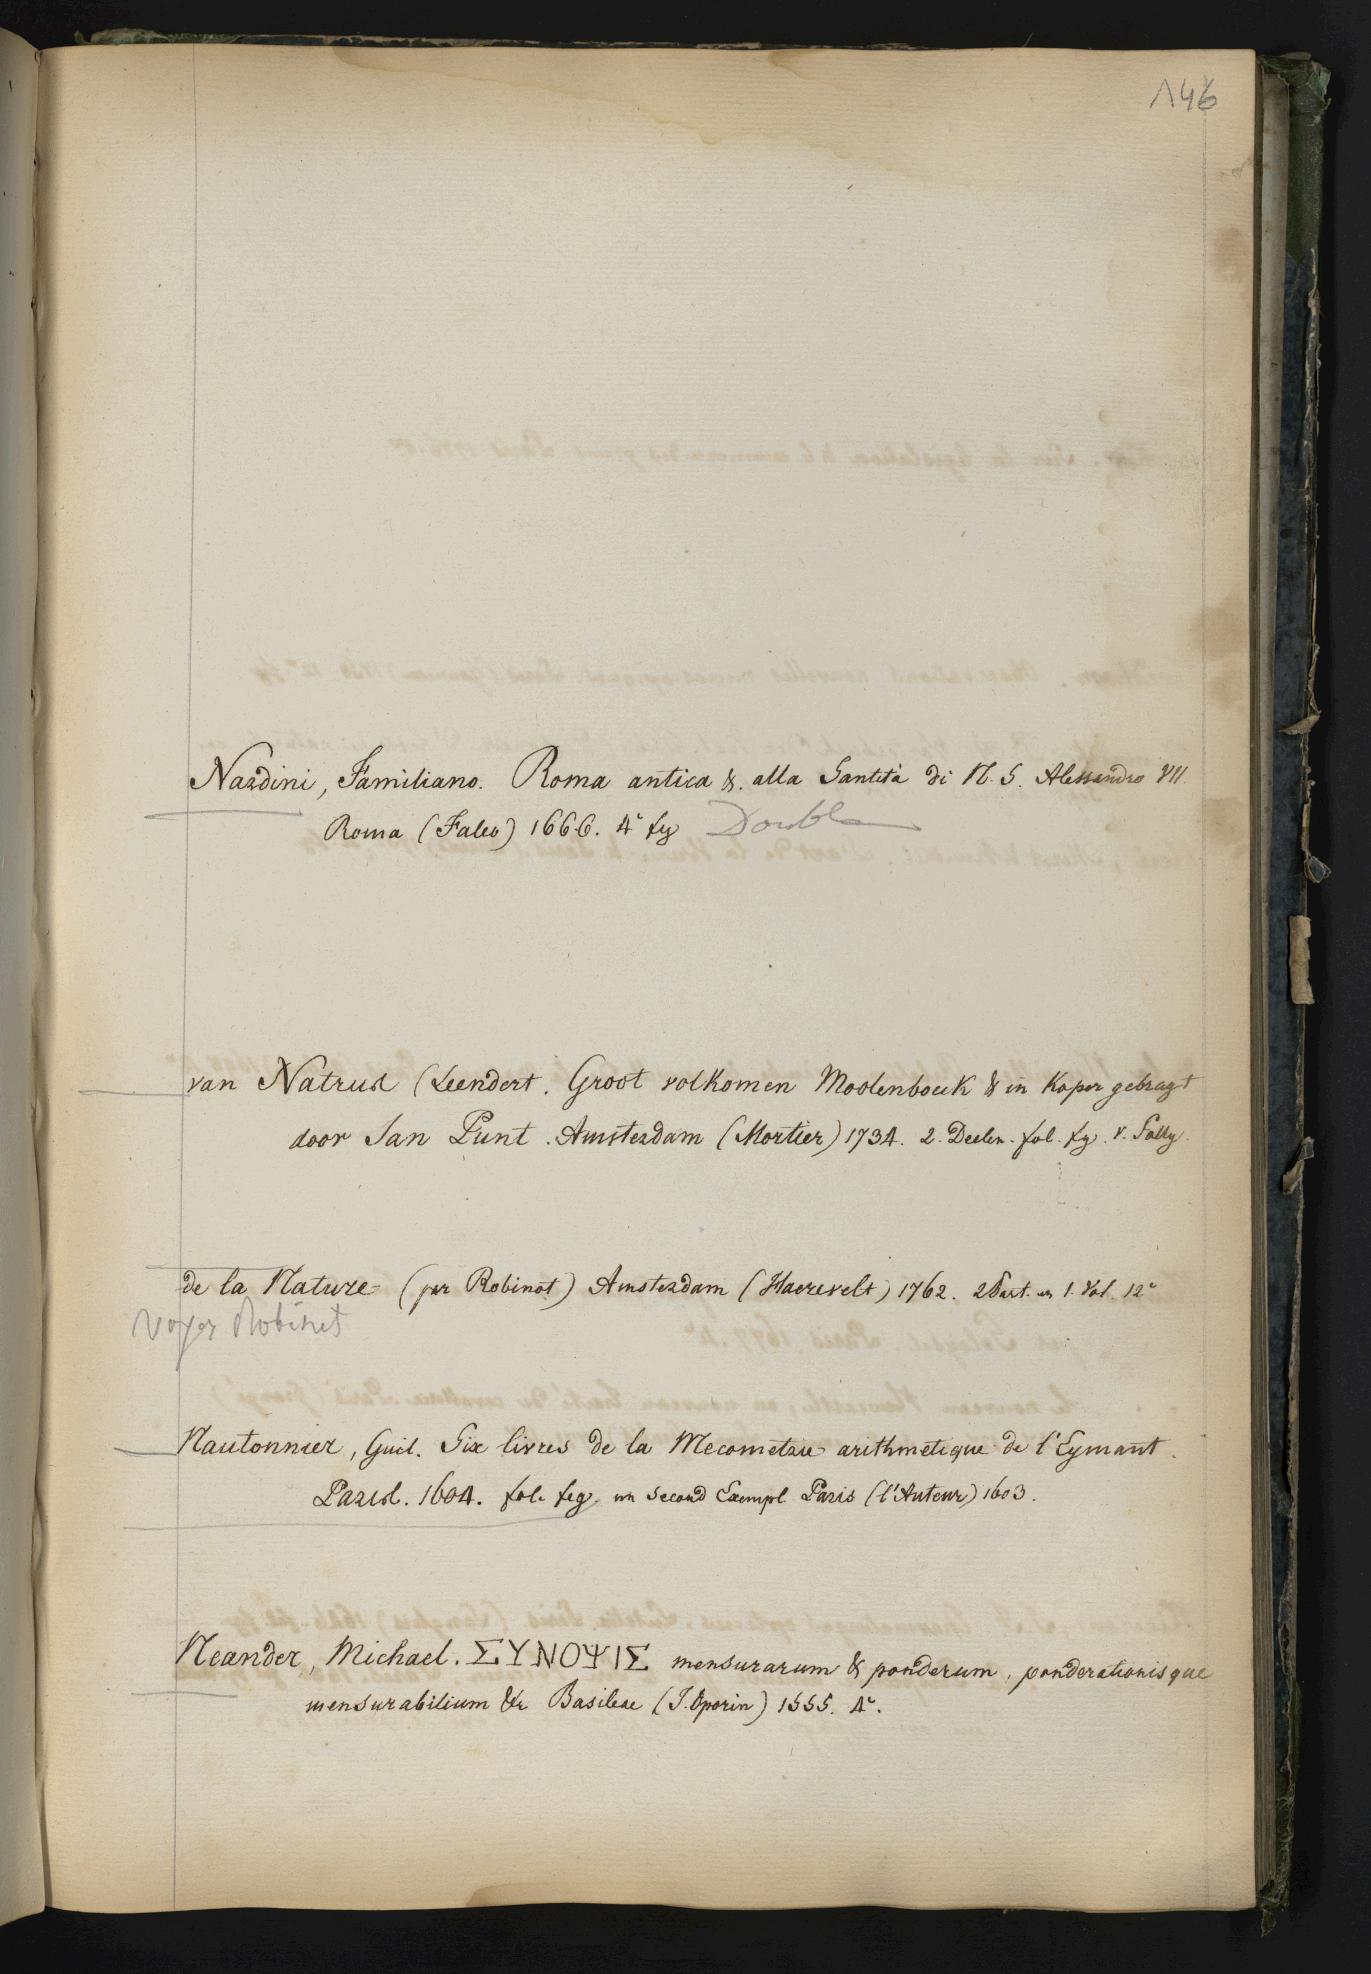 146
Nardini, Familiano. Roma antica &. alla Santità di N. S. Alessandro VII.
Roma (Falco) 1666. 4° fg Double
van Natrus (Leendert. Groot volkomen Moolenboek & in Koper gebragt
door Jan Punt. Amsterdam (Mortier) 1734. 2. Deelen. fol. fg. v. Polly.
de la Nature (par Robinot) Amsterdam (Harrevelt) 1762. 2 Part. en 1. Vol. 12°
voyez Robinet
Nautonnier, Guil. Six livres de la Mecometrie arithmetique de l'Eymant.
Paris. 1604. fol. feg. un second Exempl Paris (l'Auteur) 1603.
Neander, Michael. ΣΥΝΟΨΙΣ mensurarum & ponderum, ponderationisque
mensurabilium &c Basileae (J. Oporin) 1555. 4°.